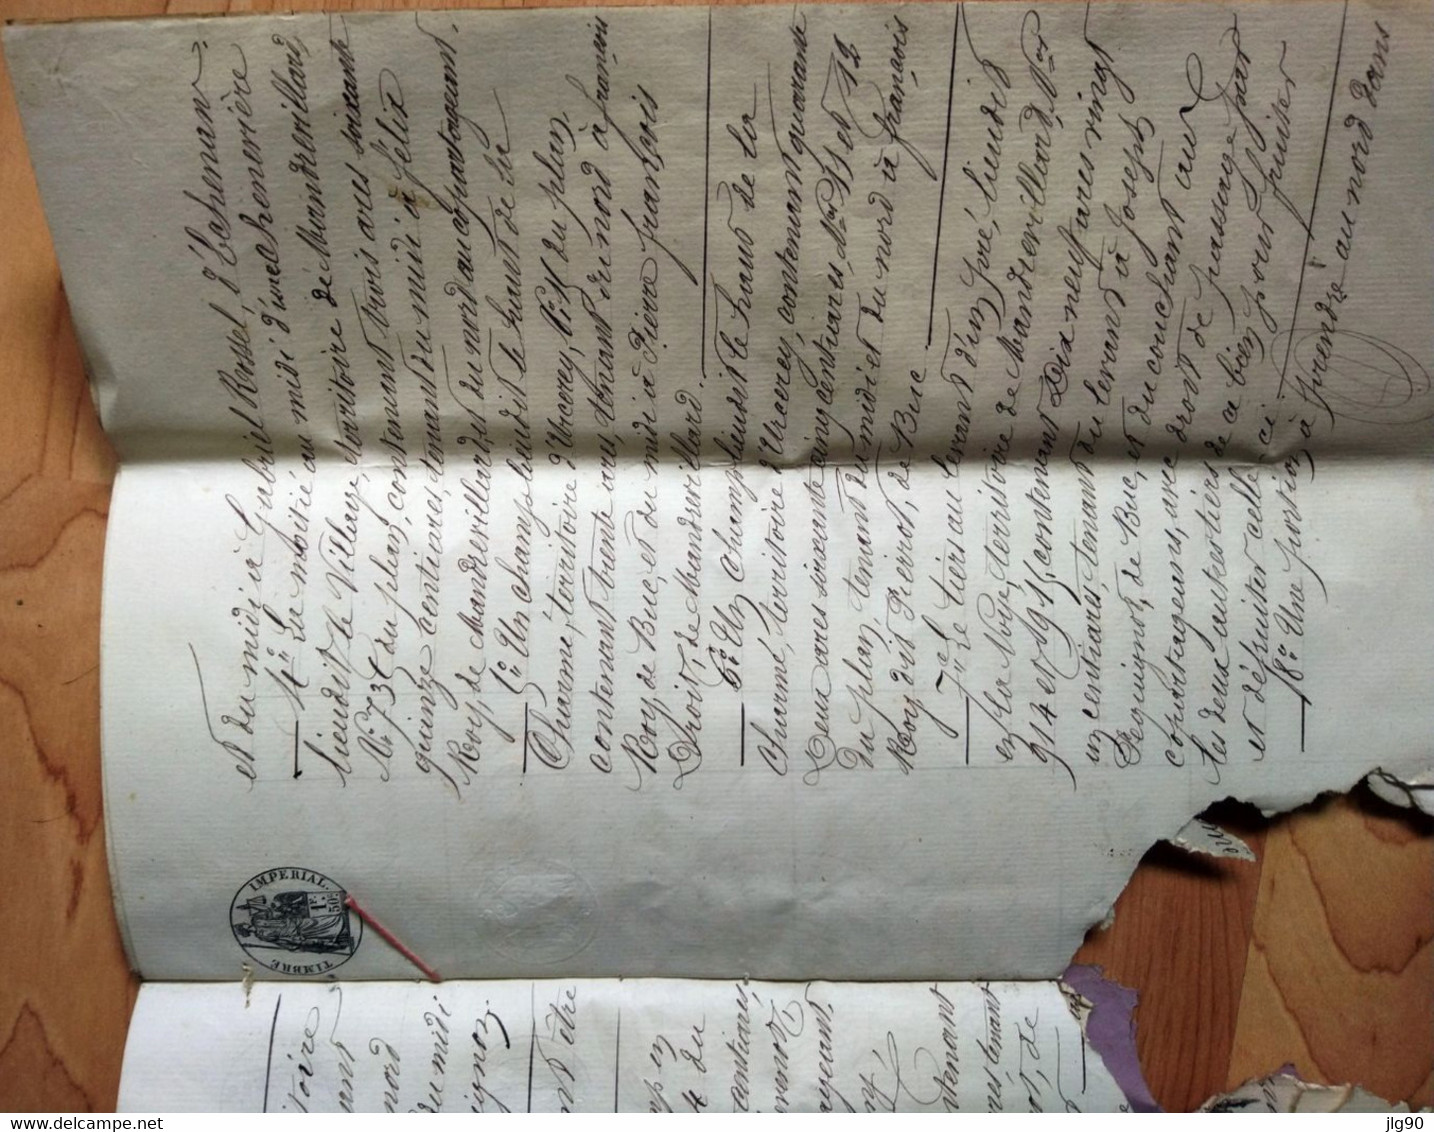 et du midi à Gabriel Rossel, d'Echenan.
4° La moitié au midi d'une chenevière
lieudit le Village, territoire de Mandrevillard,
N° 73 du plan, contenant trois ares soixante
quinze centiares, tenant du midi à félix
Roy, de Mandrevillard, et du nord au copartageant.
5° Un champ lieudit le haut de la
Charme, territoire d'Urcerey, du plan,
contenant trente ares, tenant du nord à françois
Roy, de Buc, et du midi à Pierre françois
Droit, de Mandrevillard.
6° Un champ lieudit le haut de la
Charme, territoire d'Urcerey, contenant quarante
Deux ares soixante cinq centiares, Nos 11 et 12
du plan, tenant du midi et du nord à françois
Roy dit Pierrot, de Buc
7° Le tiers au levant d'un pré, lieudit
en la Noye, territoire de Mandrevillard, Nos
914 et 915, contenant Dix neuf ares vingt
un centiares, tenant du levant à Joseph
Pequignot, de Buc, et du couchant aux
copartageans, avec droit de passage par
les deux autres tiers de ce bien pour fruiter
et défruiter celle ci.
8° Une portion à prendre au nord dans
IMPERIAL.
TIMBRE
1F.
50C.
toire
nord
du midi
ignoz.
t être
mp en
4 du
centiares,
ageant.
tenant
, de
delcampe.net
jlg90